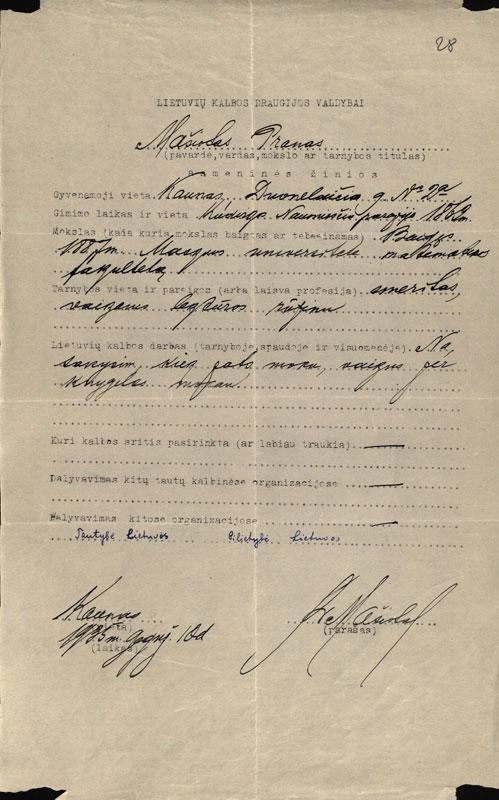 28
LIETUVIŲ KALBOS DRAUGIJOS VALDYBAI
Mašiotas Pranas
(pavardė,vardas,mokslo ar tarnybos titulas)
a s m e n i n ė s ž i n i o s
Gyvenamoji vieta Kaunas, Duonelaičio g. Nr 2a
Gimimo laikas ir vieta Kudirkos Naumiesčio parapija 1863 m.
Mokslas (kada kurią mokslo baigtas ar tebeeinamas) Baigęs
1887 m. Maskvos universiteto matematikos
fakultetą
Tarnybos vieta ir pareigos (arba laisva profesija) emeritas,
vaigams
Lietuvių kalbos darbas (tarnyboje,spaudoje ir visuomenėje) Na,
sakysim, kiek pats moku, vaikus per
knygeles mokau.
Kuri kalbos sritis pasirinkta (ar labiau traukia)
Dalyvavimas kitų tautų kalbinėse organizacijose
Dalyvavimas kitose organizacijose
Tautybė Lietuvos Pilietybė Lietuvos
Kaunas
(vieta)
1935 m. Geguž. 10 d
(laikas)
Pr Mašiotas
(parašas)